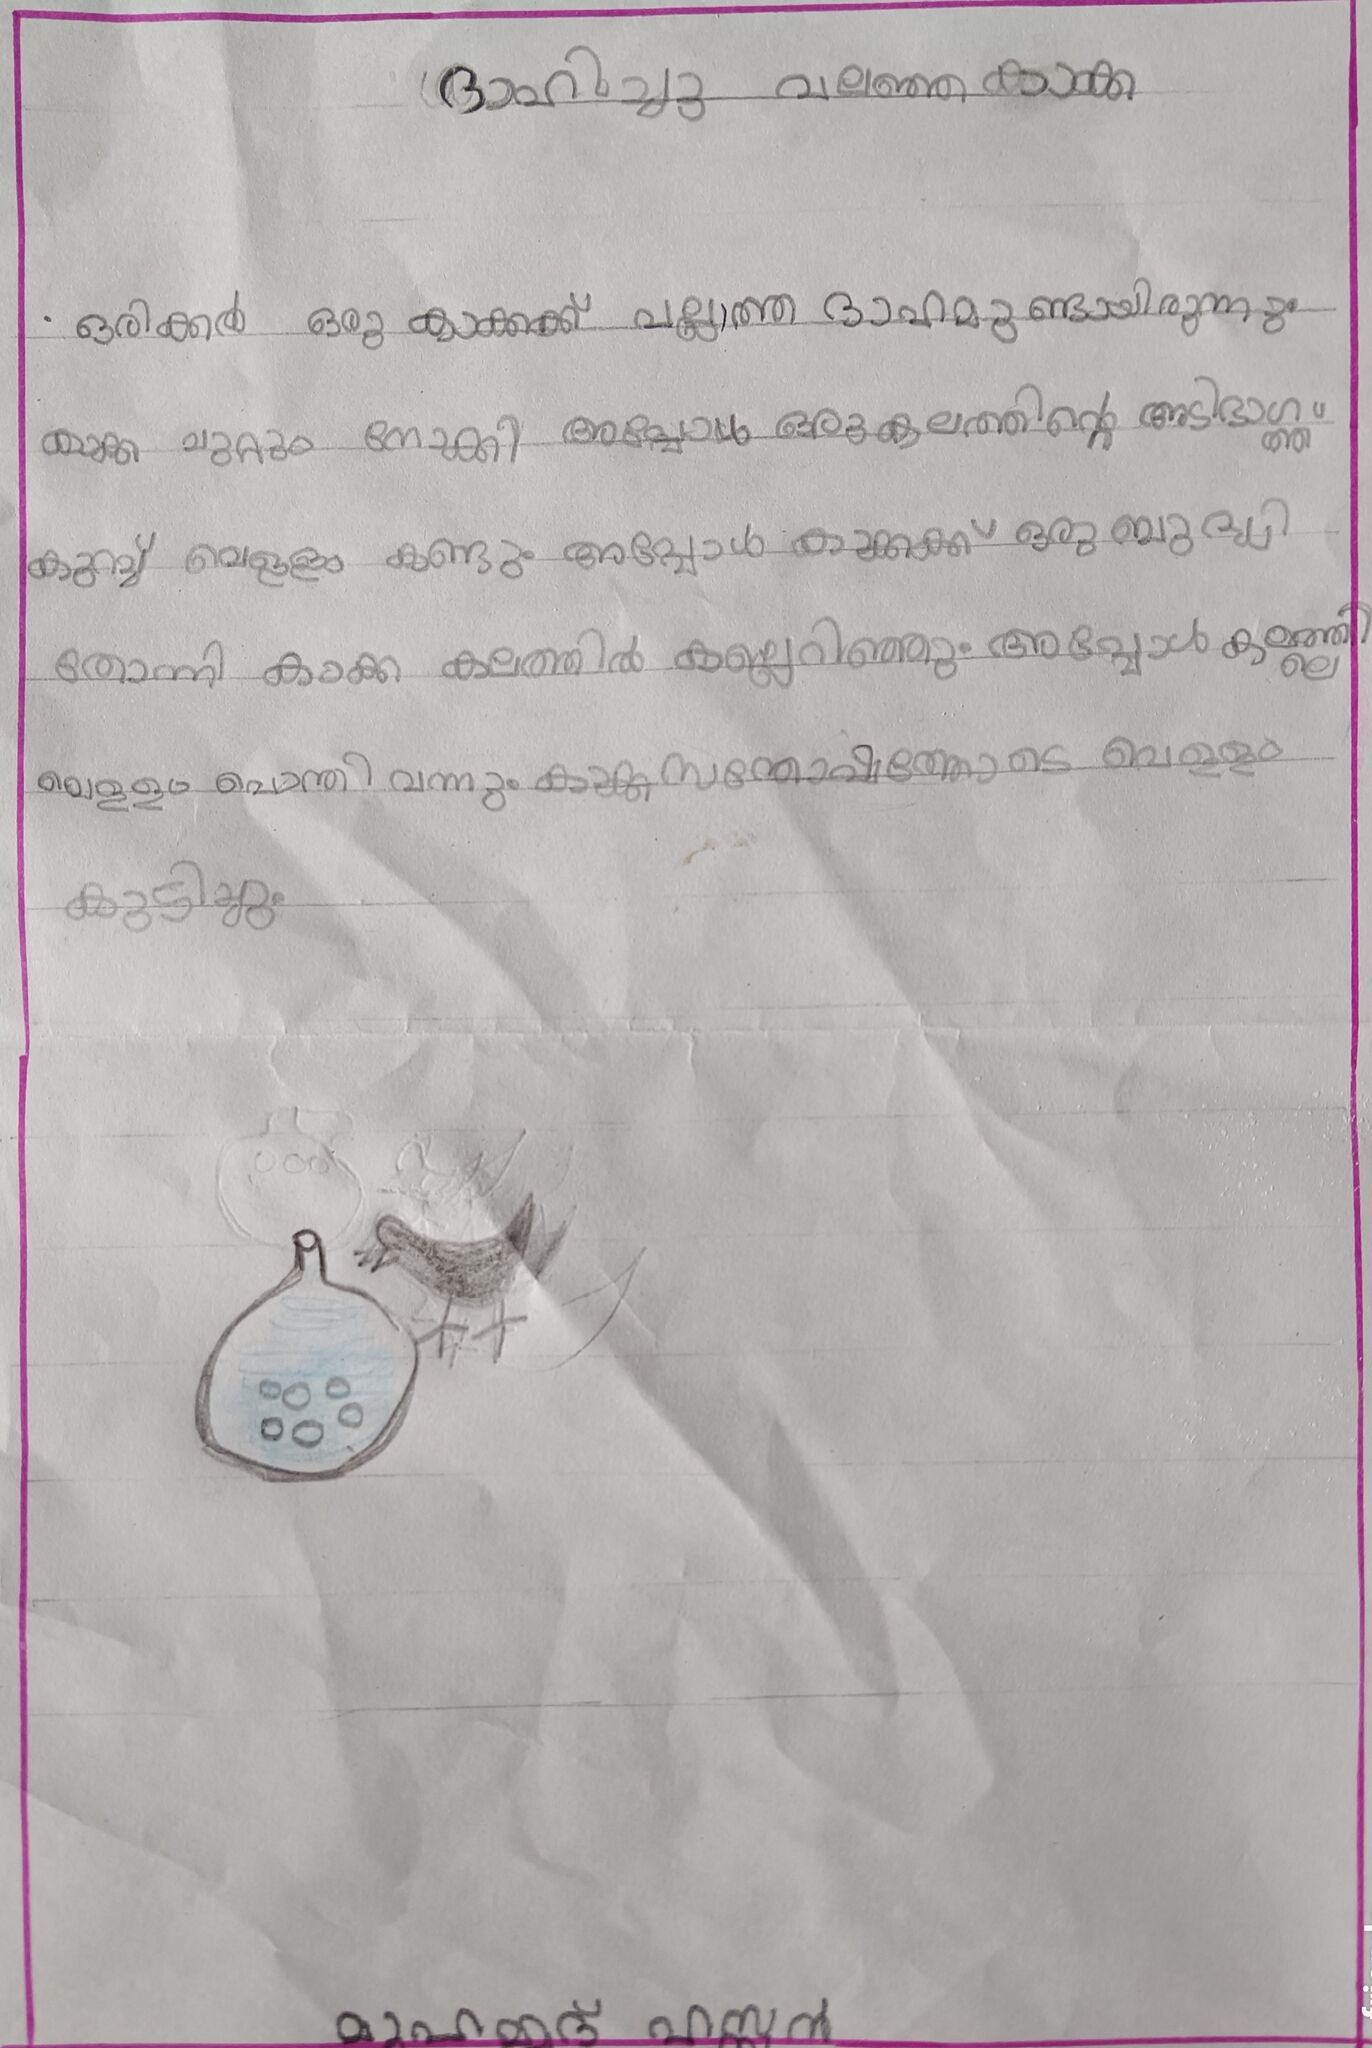 ദാഹിച്ചു വലഞ്ഞ കാക്ക
ഒരിക്കൽ ഒരു കാക്കക്ക് വല്ലാത്ത ദാഹമുണ്ടായിരുന്നും
കാക്ക ചുറ്റും നോക്കി അപ്പോൾ ഒരു കലത്തിന്റെ അടിഭാഗത്ത്
കുറച്ച് വെള്ളം കണ്ടും അപ്പോൾ കാക്കക്ക് ഒരു ബുദ്ധി
തോന്നി കാക്ക കലത്തിൽ കല്ലെറിഞ്ഞും അപ്പോൾ കലത്തിലെ
വെള്ളം പൊന്തി വന്നും കാക്ക സന്തോഷത്തോടെ വെള്ളം
കുടിച്ചും
മുഹമ്മദ് ഹസ്സൻ